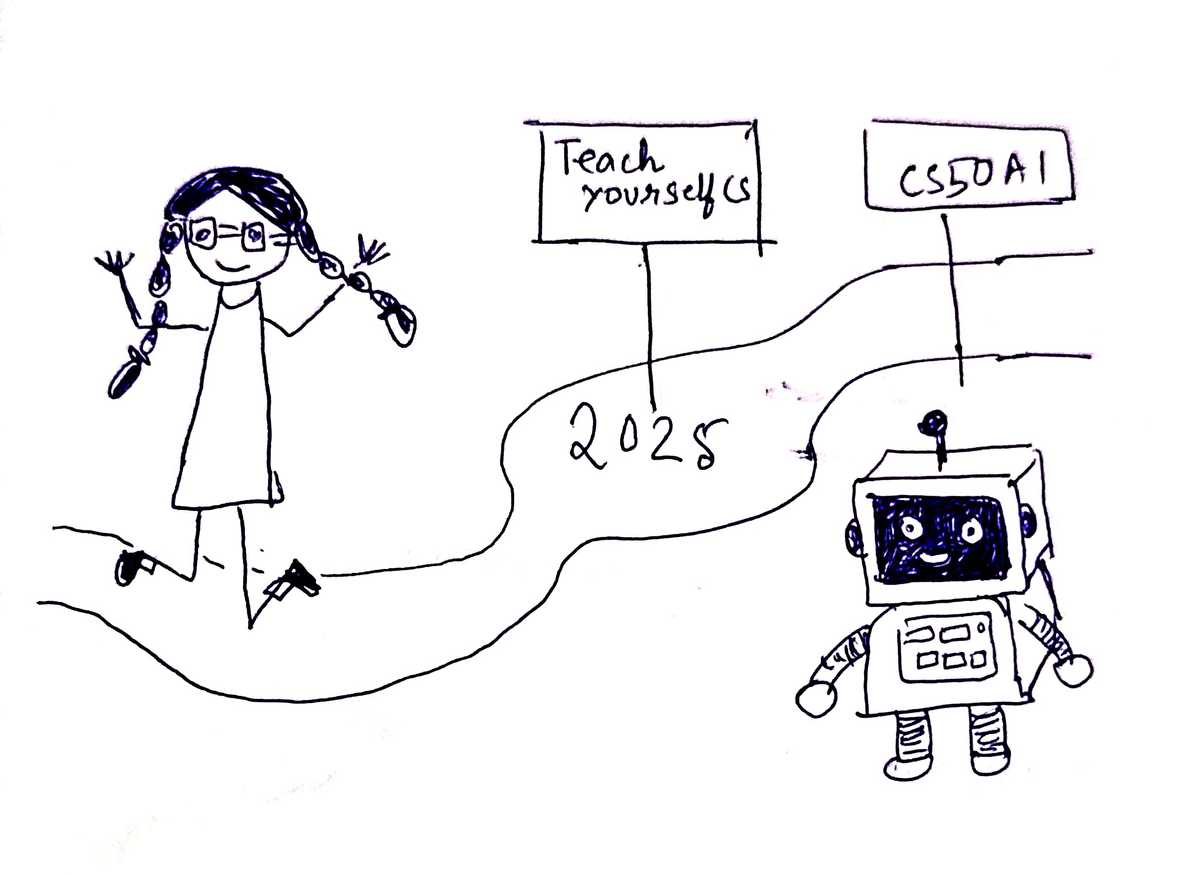 Teach
yourself CS
CS50 AI
2025